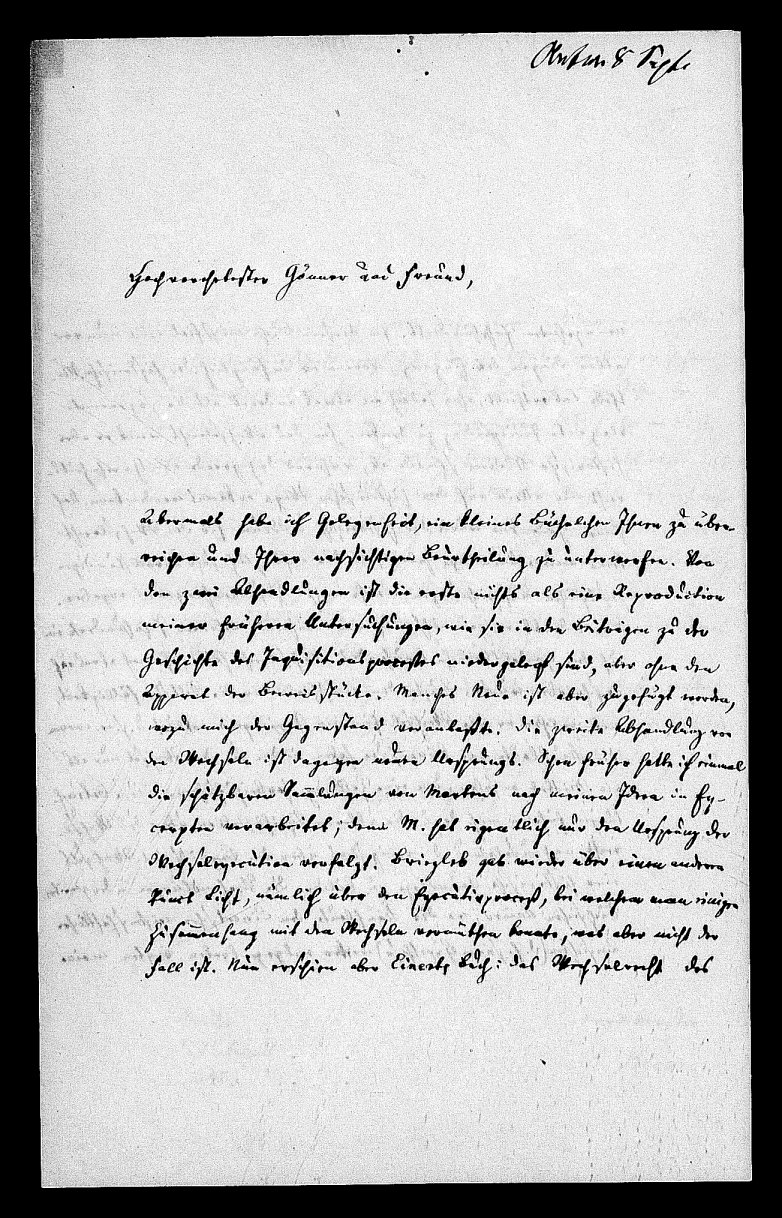 Antw. 8 Sept.
Hochverehrtester Gönner und Freund,
Abermals habe ich Gelegenheit, ein kleines Büchelchen Ihnen zu über-
reichen und Ihrer nachsichtigen Beurtheilung zu unterwerfen. Von
den zwei Abhandlungen ist die erste nichts als eine Reproduction
meiner früheren Untersuchungen, wie sie in den Beiträgen zu der
Geschichte des Inquisitionsprocesses niedergelegt sind, aber ohne den
Apparat der Beweisstücke. Manches Neue ist aber zugefügt worden,
wozu mich der Gegenstand veranlaßte. Die zweite Abhandlung von
den Wechseln ist dagegen neuen Ursprungs. Schon früher hatte ich einmal
die schätzbaren Sammlungen von Martens nach meinen Ideen in Ex-
cerpten verarbeitet; denn M. hat eigentlich nur den Ursprung der
Wechselexecution verfolgt. Briegleb gab wieder über einen anderen
Punct Licht, nämlich über den Executivproceß, bei welchem man einigen
Zusammenhang mit den Wechseln vermuthen konnte, was aber nicht der
Fall ist. Nun erschien aber Einerts Buch: das Wechselrecht des